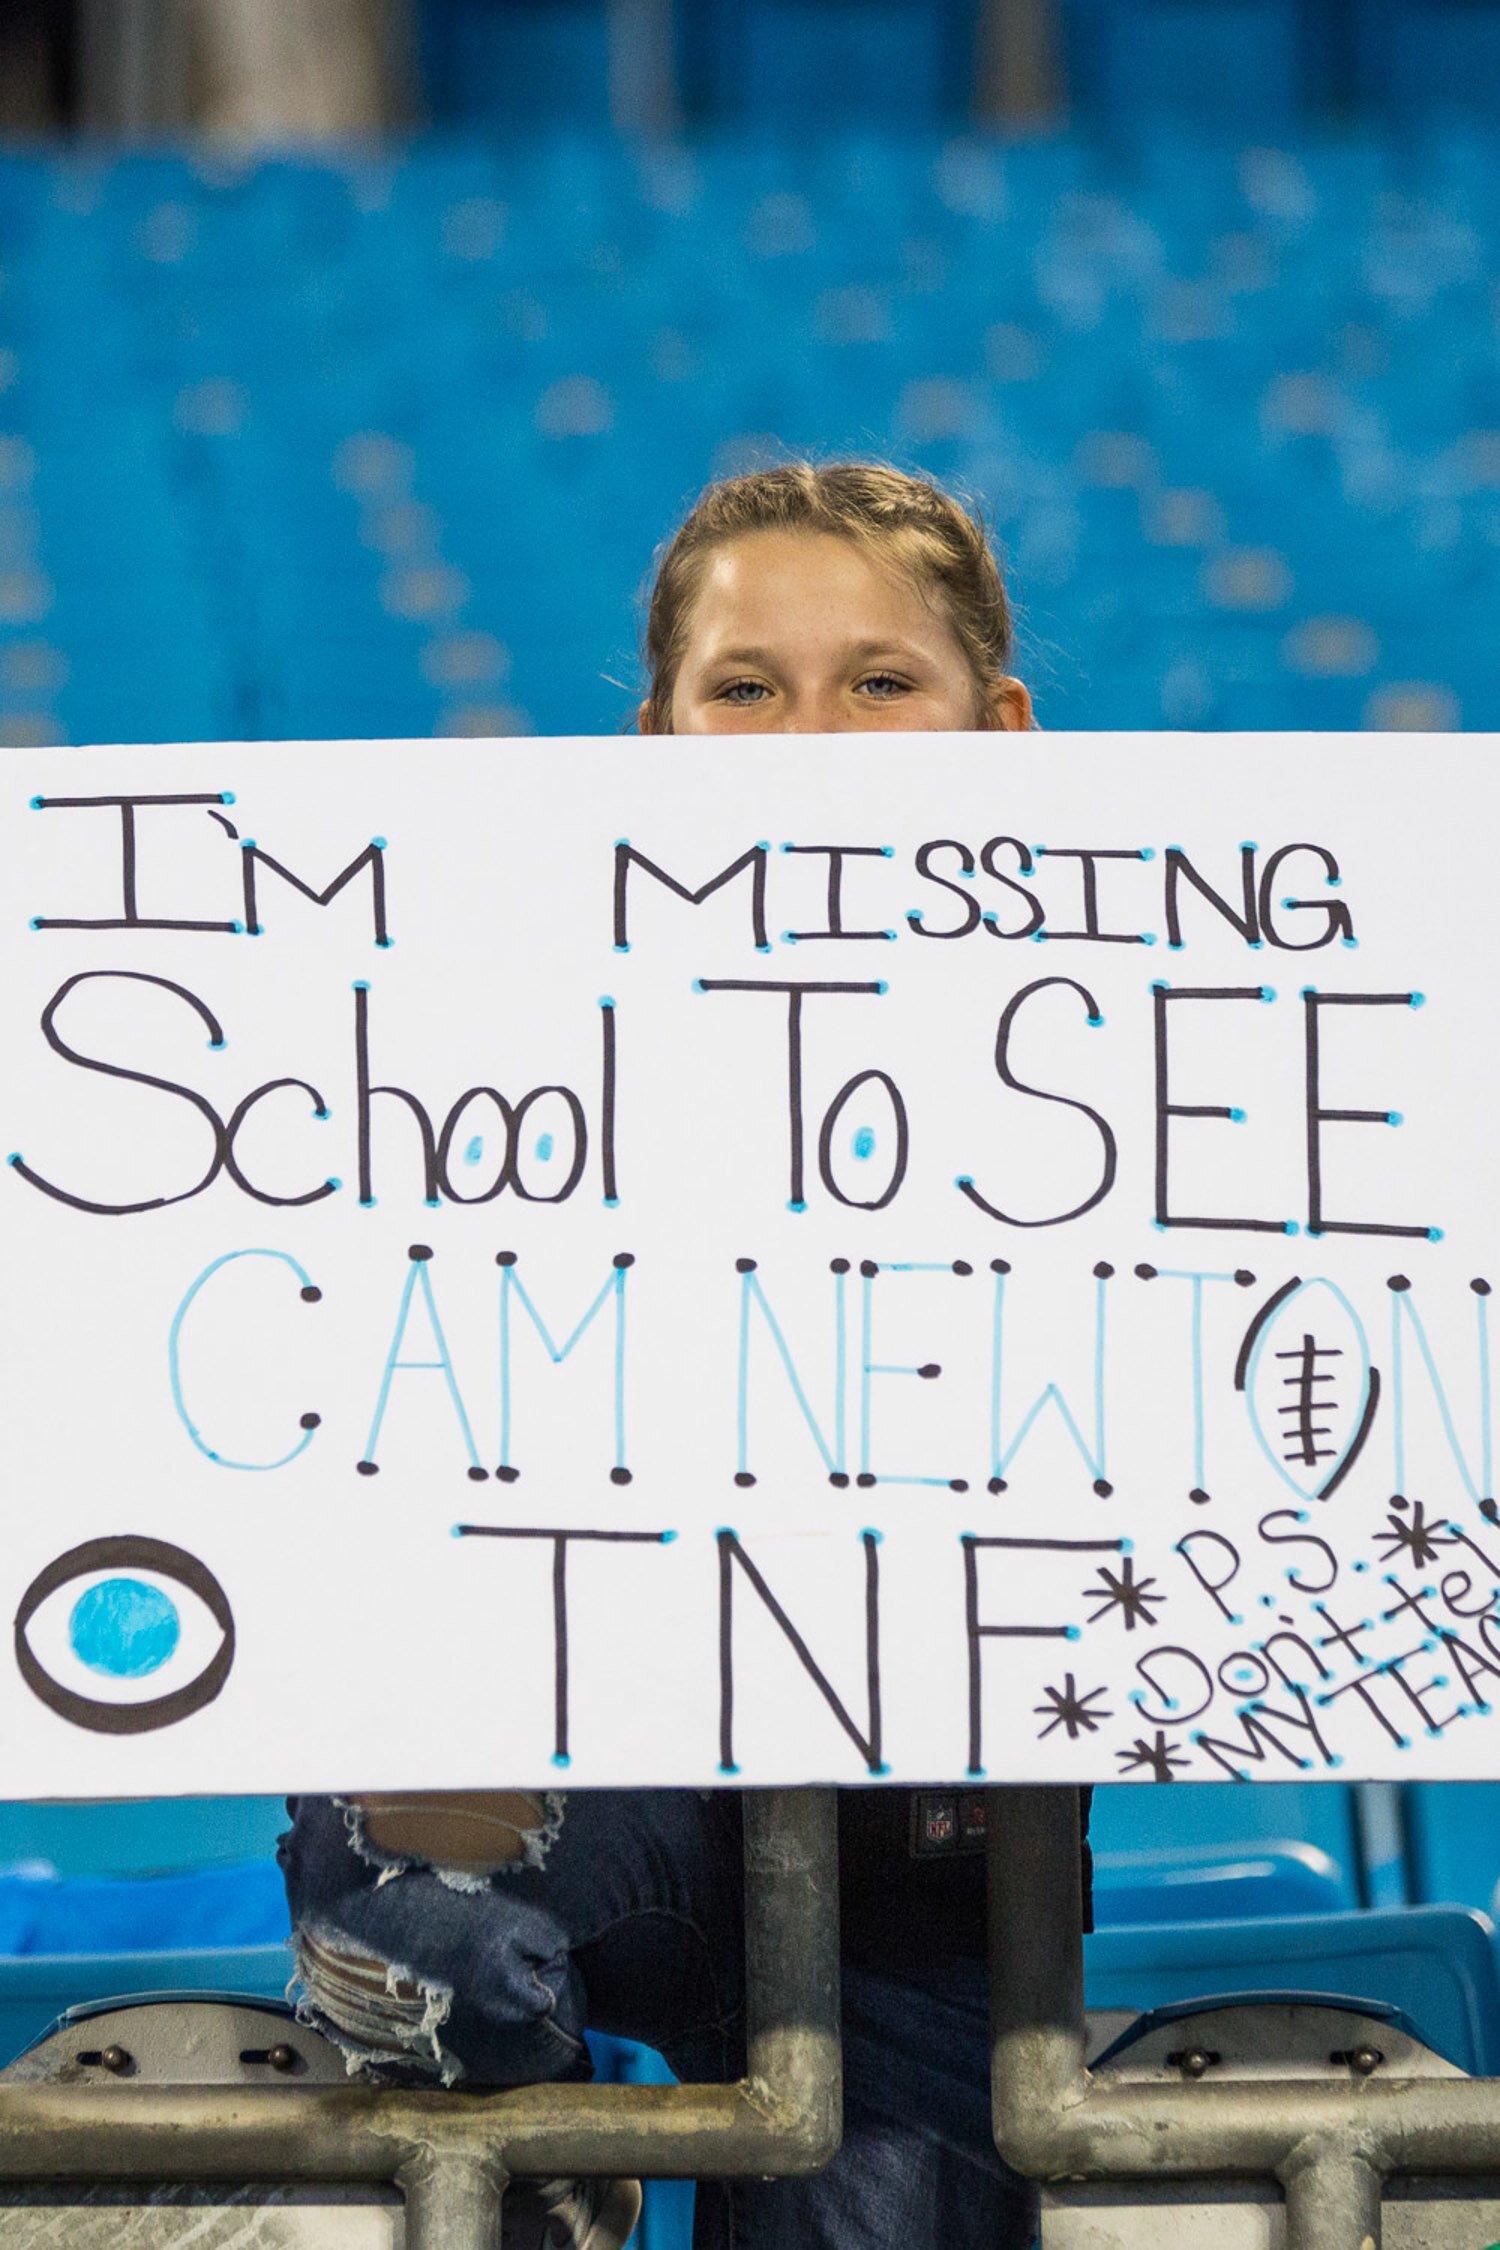 I'M MISSING
School To SEE
CAM NEWTON
TNF
* P.S. *
Don't tell
* MY
NFL